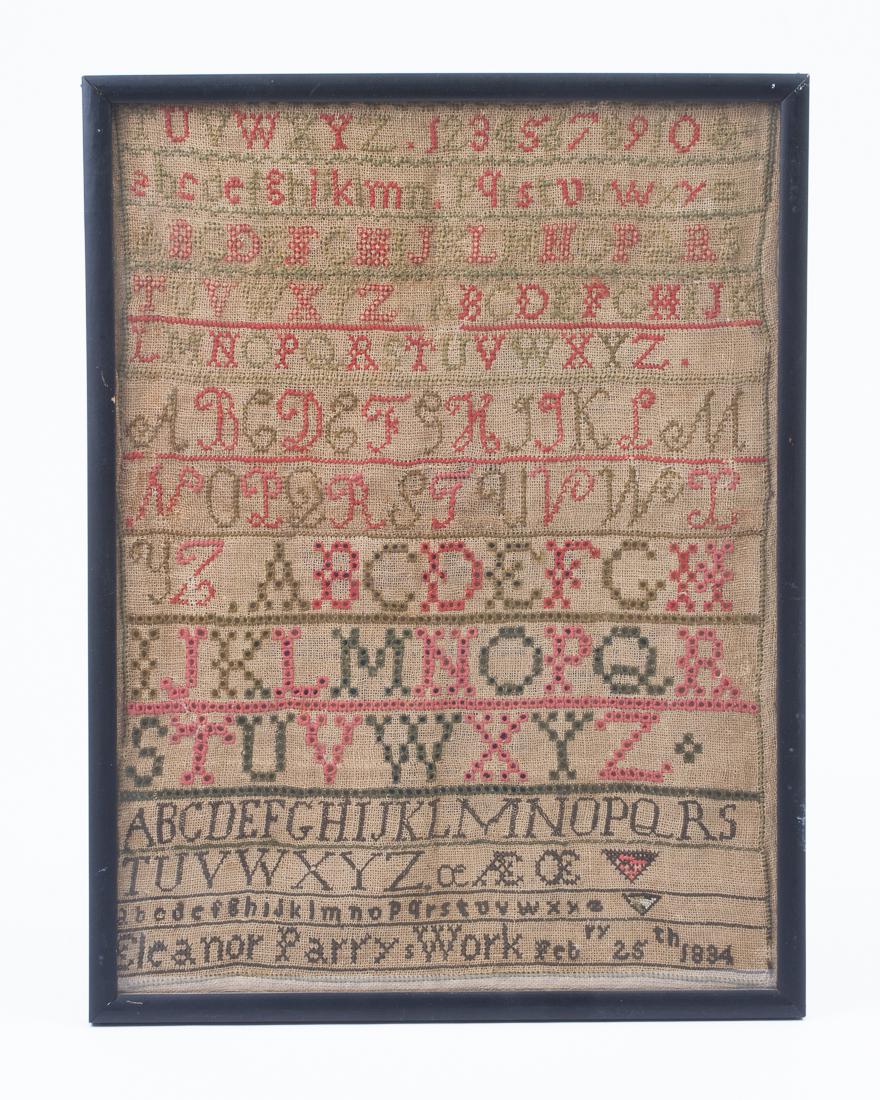 U V W X Y Z . 1 2 3 4 5 6 7 8 9 0
a b c d e f g h i k l m n . p q s t u v w x y z
A B C D E F G H I J K L M N O P Q R S
T U V W X Y Z . A B C D E F G H I J K
L M N O P Q R S T U V W X Y Z .
A B C D E F G H I J K L M
N O P Q R S T U V W X
Y Z . A B C D E F G H
I J K L M N O P Q R
S T U V W X Y Z
A B C D E F G H I J K L M N O P Q R S
T U V W X Y Z . œ Æ Œ
a b c d e f g h i j k l m n o p q r s t u v w x y z
Eleanor Parry s Work Feb ry 25 th 1884